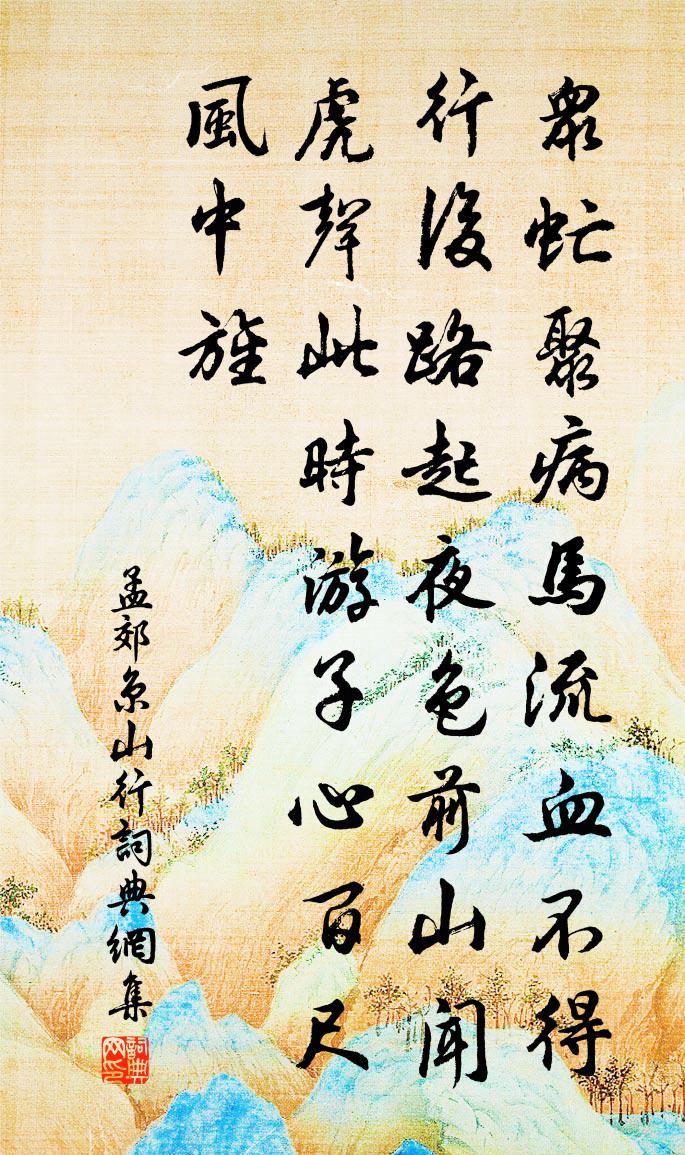 眾虻聚病馬流血不得
行後路起夜色前山聞
虎聲此時游子心百尺
風中旌
孟郊京山行詞典網集
詞典網印